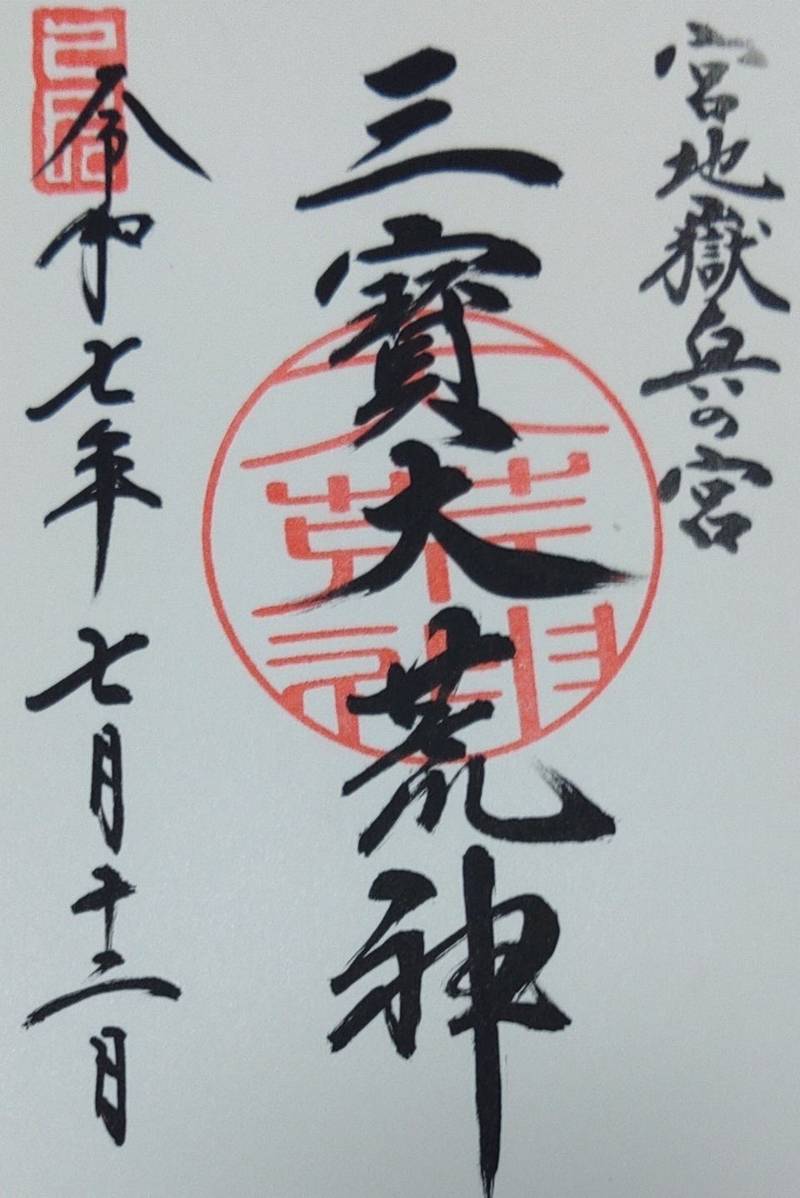 宮地嶽奥の宮
三寳大荒神
令和七年七月十二日